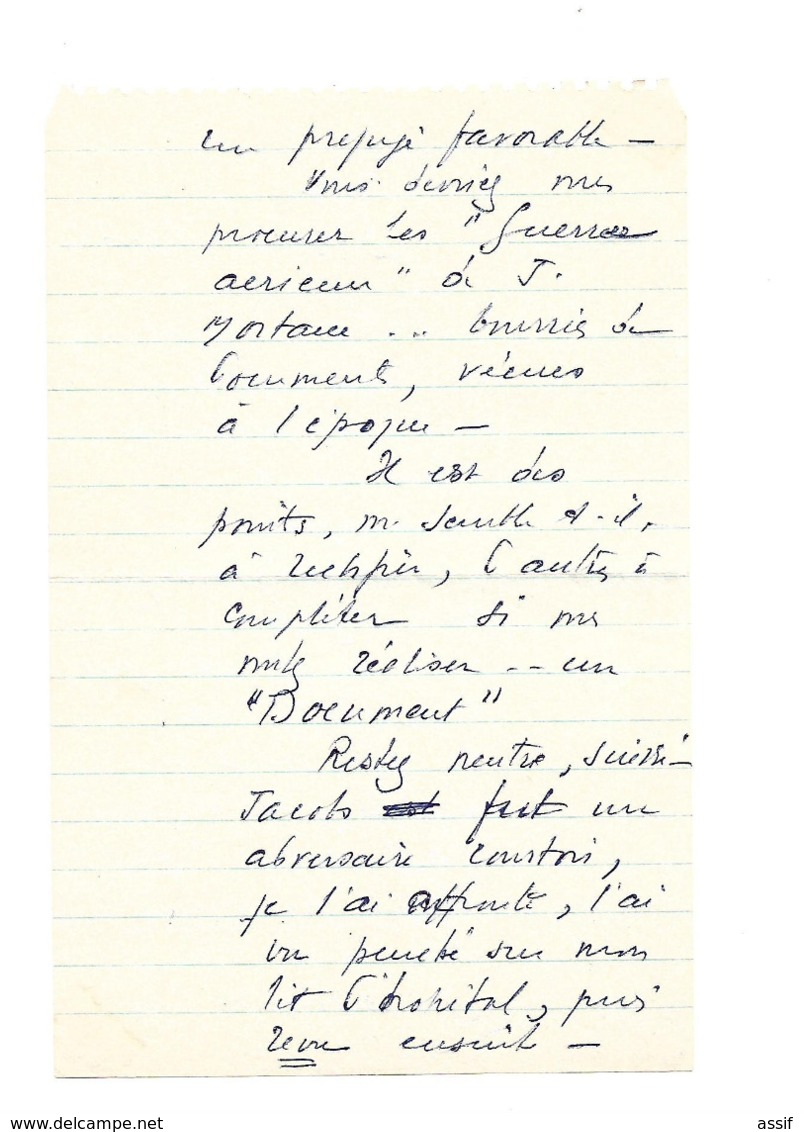 un préjugé favorable —
Vous devriez vous
procurer les "Guerres
aérienn" de J.
Mortane ... bourrés de
Documents, vécues
à l'époque —
Il est des
points, me semble t-il,
à rectifier, d'autres à
compléter si vous
voulez réaliser -- un
"Document"
Restez neutre, sincère —
Jacobs fut un
adversaire courtois,
je l'ai affronté, l'ai
vu penché sur mon
lit d'hôpital, puis
revu ensuite —
assif